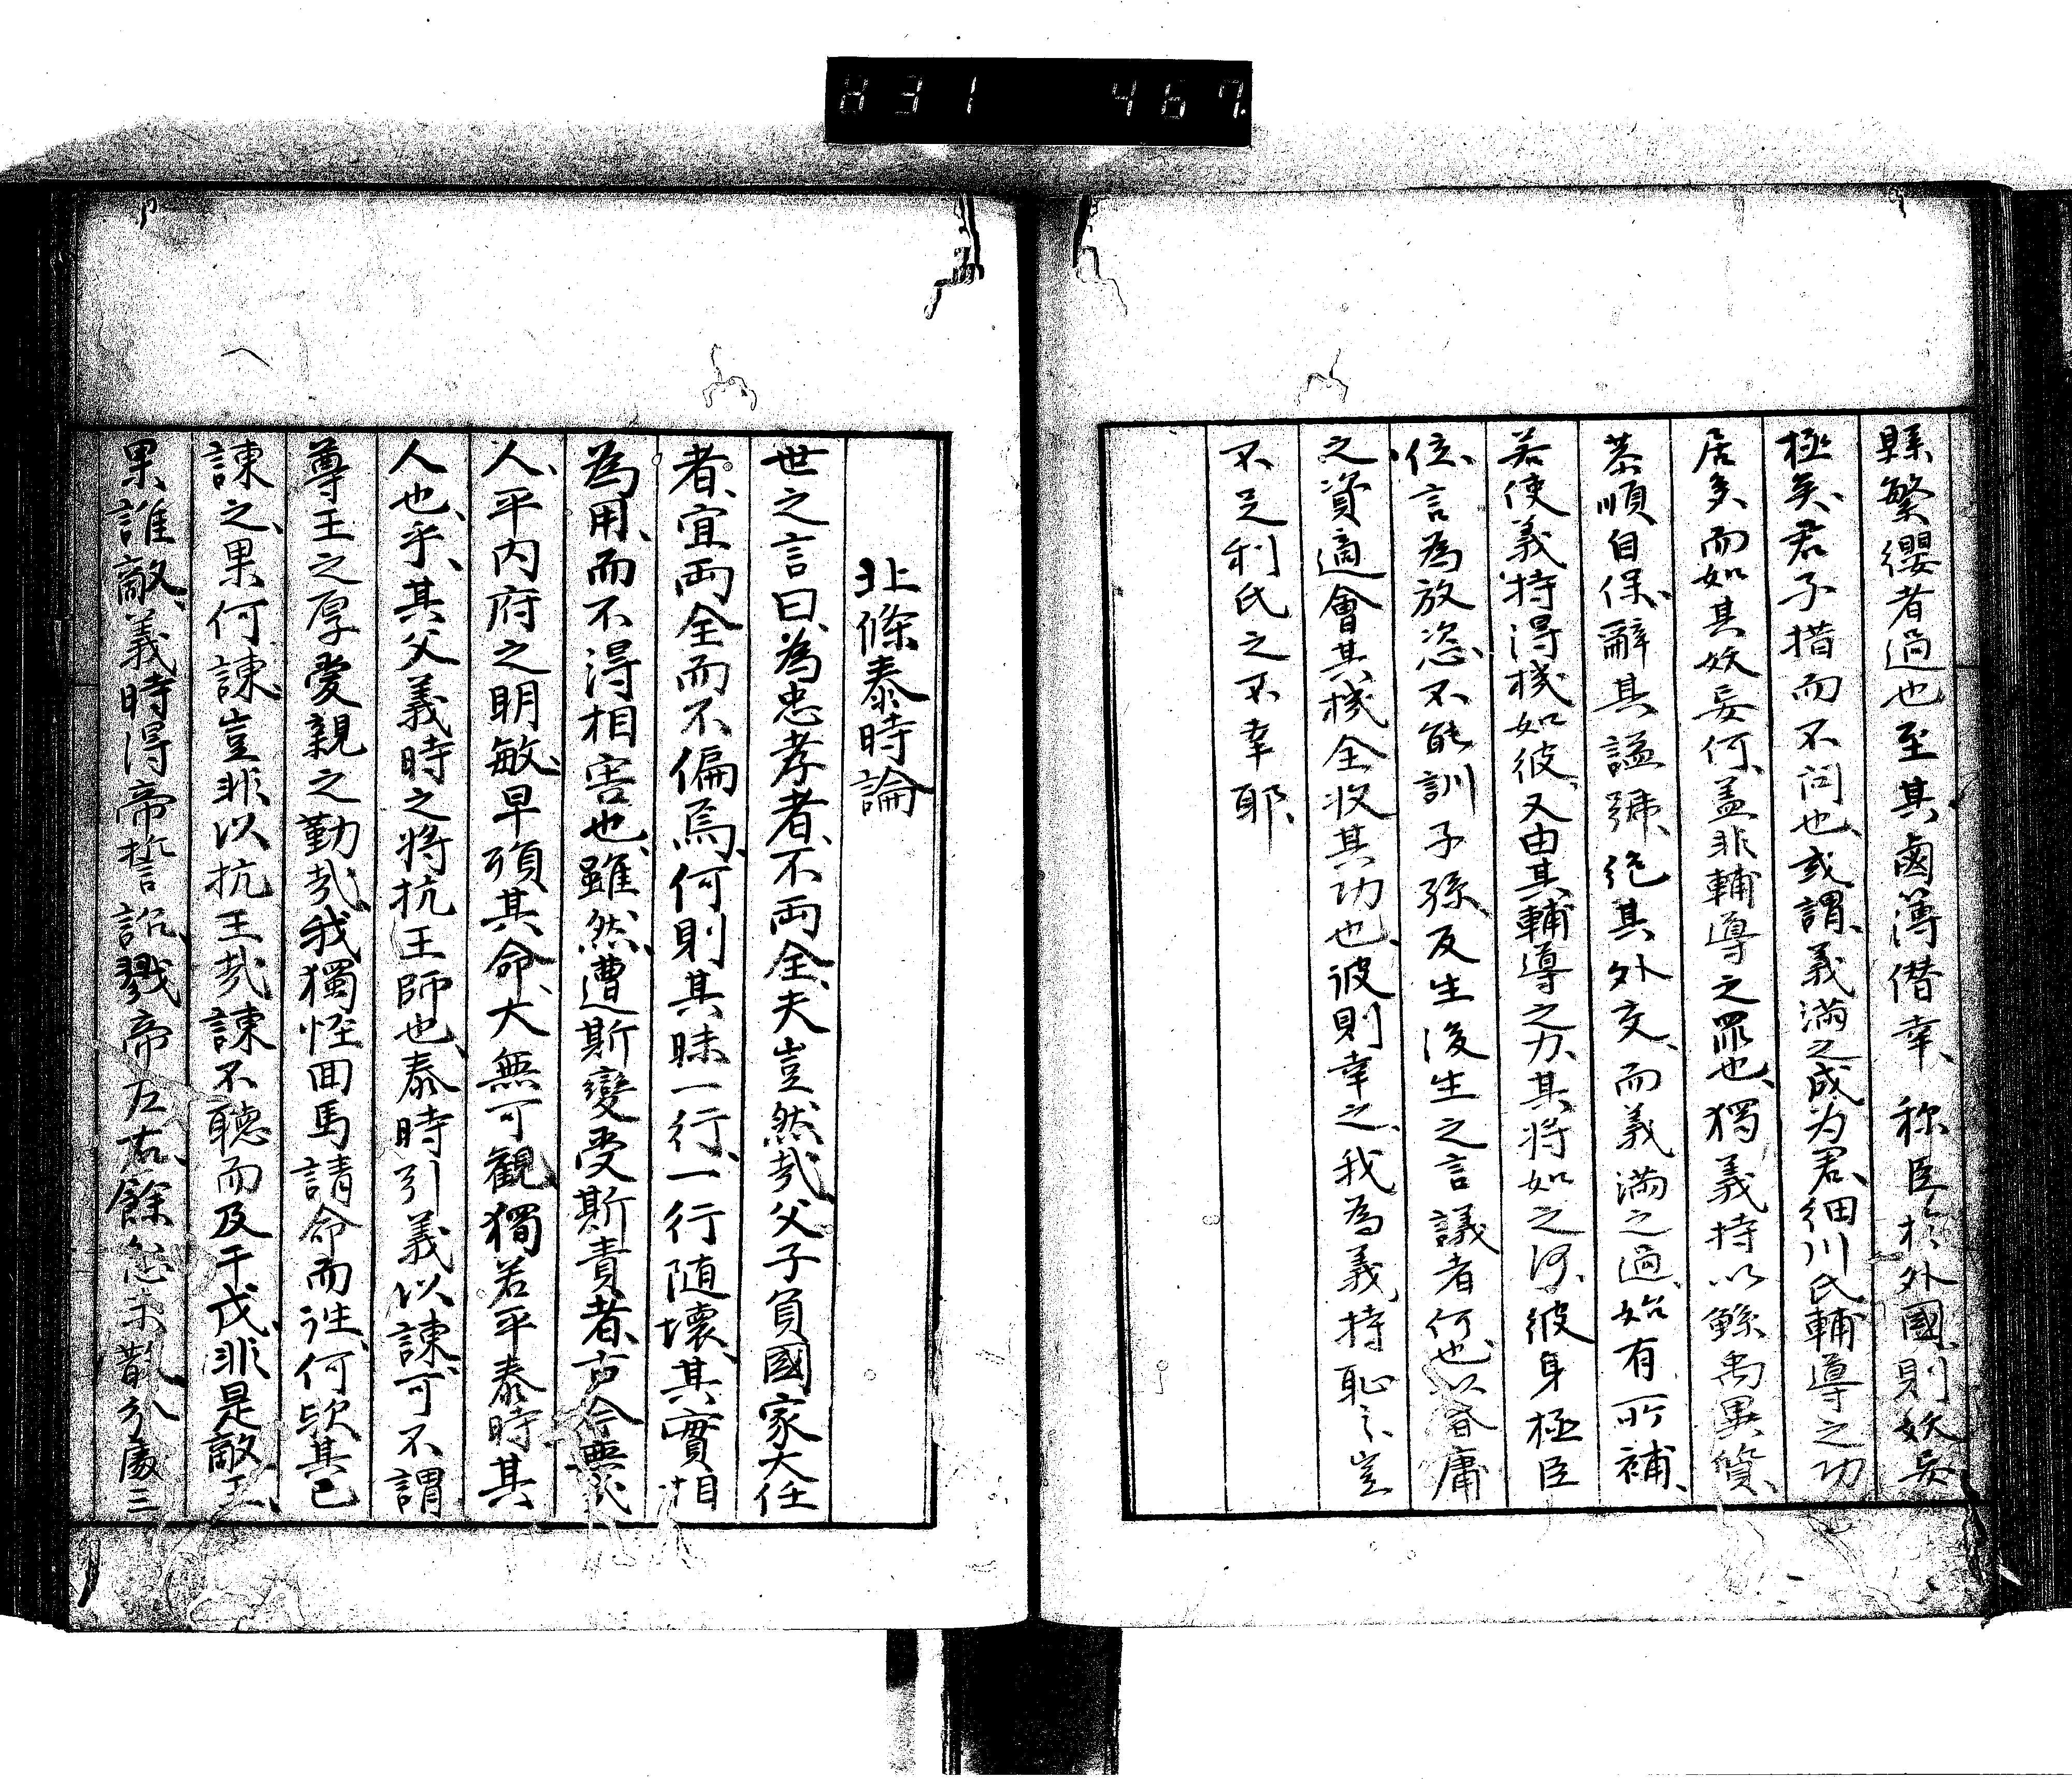 831 467
縣繁纓者過也、至其鹵薄僭幸、称臣於外國、則妖妄
極矣、君子措而不问也、或謂、義満之成为君、细川氏輔導之功
居多、而如其妖妄何、盖非輔導之罪也、獨義持以鯀禹異質、
恭順自保、辭其謚號、绝其外交、而義満之過、始有所補、
若使義持得機如彼、又由其輔導之力、其将如之何、彼身極臣
位、言為放恣、不能訓子孫、反生後生之言議者何也、以昏庸
之資適會其機、全收其功也、彼則幸之、我為義持恥之、豈
不足利氏之不幸耶、
北條泰時論
世之言曰、為忠孝者、不両全、夫豈然哉、父子負國家大任
者、宜両全而不偏焉、何則其昧一行、一行随壊、其實相
為用、而不得相害也、雖然、遭斯變受斯責者、古今無幾
人、平内府之明敏、早殞其命、大無可観、獨若平泰時、其
人也乎、其父義時之将抗王師也、泰時引義以諌、可不謂
尊王之厚愛親之勤哉、我獨怪囬馬請命而往、何欤、其已
諌之、果何諌、豈非以抗王哉、諌不聴而及干戈、非是敵王、
果誰敵、義時得帝誓詔、戮帝左右、餘怨未散、分處三